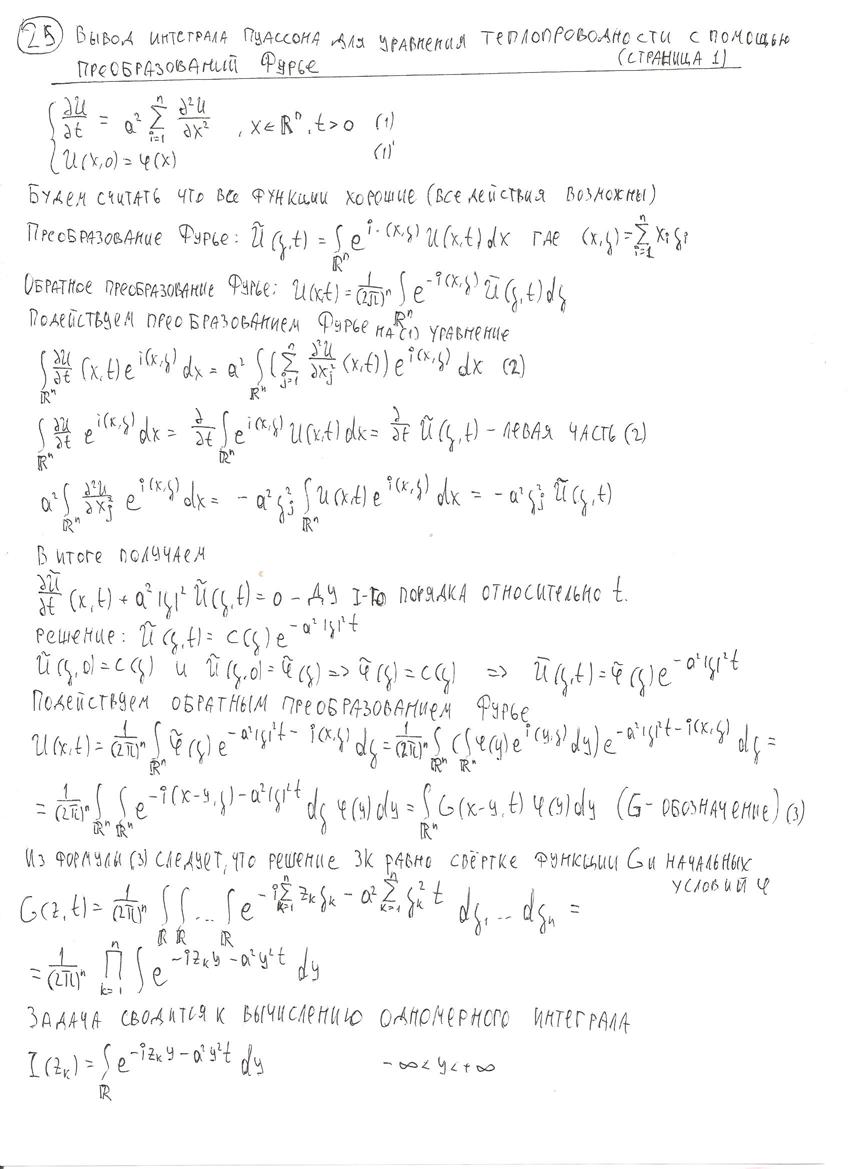 25 Вывод интеграла Пуассона для уравнения теплопроводности с помощью
преобразований Фурье (страница 1)
{ ∂U/∂t = a² ∑_{i=1}^{n} ∂²U/∂x² , x∈ℝⁿ, t>0 (1)
U(x,0)=φ(x) (1)'
Будем считать что все функции хорошие (все действия возможны)
Преобразование Фурье: Ũ(ξ,t) = ∫_{ℝⁿ} e^{i·(x,ξ)} U(x,t)dx где (x,ξ)=∑_{i=1}^{n} xᵢξᵢ
Обратное преобразование Фурье: U(x,t)=1/(2π)ⁿ ∫_{ℝⁿ} e^{-i(x,ξ)} Ũ(ξ,t)dξ
Подействуем преобразованием Фурье на (1) уравнение
∫_{ℝⁿ} ∂U/∂t (x,t)e^{i(x,ξ)}dx = a² ∫_{ℝⁿ} (∑_{j=1}^{n} ∂²U/∂xⱼ² (x,t)) e^{i(x,ξ)} dx (2)
∫_{ℝⁿ} ∂U/∂t e^{i(x,ξ)}dx = ∂/∂t ∫_{ℝⁿ} e^{i(x,ξ)} U(x,t)dx = ∂/∂t Ũ(ξ,t) – левая часть (2)
a² ∫_{ℝⁿ} ∂²U/∂xⱼ² e^{i(x,ξ)}dx = -a²ξⱼ² ∫_{ℝⁿ} U(x,t)e^{i(x,ξ)}dx = -a²ξⱼ² Ũ(ξ,t)
В итоге получаем
∂Ũ/∂t (x,t) + a²|ξ|² Ũ(ξ,t)=0 – ДУ I-го порядка относительно t.
Решение: Ũ(ξ,t)= C(ξ)e^{-a²|ξ|²t}
Ũ(ξ,0)=C(ξ) и Ũ(ξ,0)=φ̃(ξ) => φ̃(ξ)=C(ξ) => Ũ(ξ,t)=φ̃(ξ)e^{-a²|ξ|²t}
Подействуем обратным преобразованием Фурье
U(x,t)=1/(2π)ⁿ ∫_{ℝⁿ} φ̃(ξ)e^{-a²|ξ|²t - i(x,ξ)}dξ = 1/(2π)ⁿ ∫_{ℝⁿ} (∫_{ℝⁿ} φ(y)e^{i(y,ξ)}dy)e^{-a²|ξ|²t-i(x,ξ)}dξ =
= 1/(2π)ⁿ ∫_{ℝⁿ} ∫_{ℝⁿ} e^{-i(x-y,ξ)-a²|ξ|²t}dξ φ(y)dy = ∫_{ℝⁿ} G(x-y,t)φ(y)dy (G-обозначение) (3)
Из формулы (3) следует, что решение ЗК равно свёртке функции G и начальных
условий φ
G(z,t)= 1/(2π)ⁿ ∫_ℝ ∫_ℝ ... ∫_ℝ e^{-i∑_{k=1}^{n} z_kξ_k - a²∑_{k=1}^{n} ξ_k² t} dξ₁ ... dξₙ =
= 1/(2π)ⁿ ∏_{k=1}^{n} ∫ e^{-iz_k y - a²y²t} dy
Задача сводится к вычислению одномерного интеграла
I(z_k) = ∫_ℝ e^{-iz_k y - a²y²t} dy -∞<y<+∞